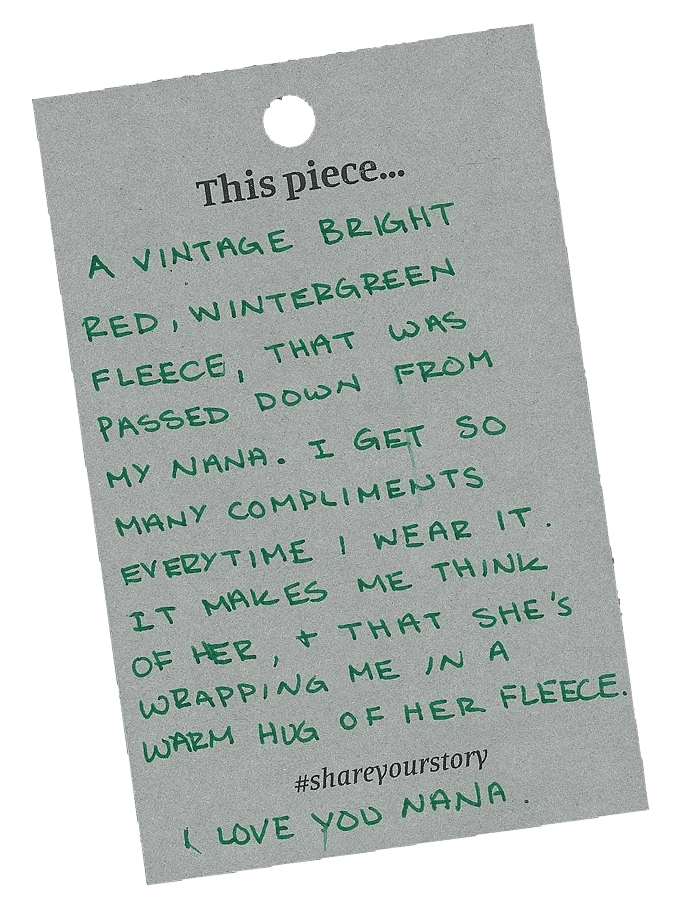 This piece...
A VINTAGE BRIGHT
RED, WINTERGREEN
FLEECE, THAT WAS
PASSED DOWN FROM
MY NANA. I GET SO
MANY COMPLIMENTS
EVERYTIME I WEAR IT.
IT MAKES ME THINK
OF HER, + THAT SHE'S
WRAPPING ME IN A
WARM HUG OF HER FLEECE.
#shareyourstory
I LOVE YOU NANA.